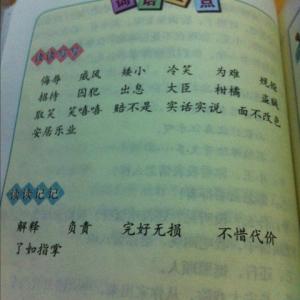 词语 点
读读写写
侮辱 威风 矮小 冷笑 为难 规矩
招待 囚犯 出息 大臣 柑橘 盗窃
取笑 笑嘻嘻 赔不是 实话实说 面不改色
安居乐业
读读记记
解释 负责 完好无损 不惜代价
了如指掌